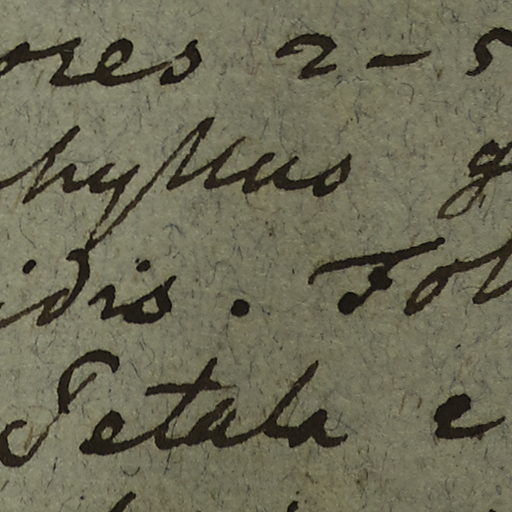 ores 2-5
hyllus g
idis. Fol
Petala e